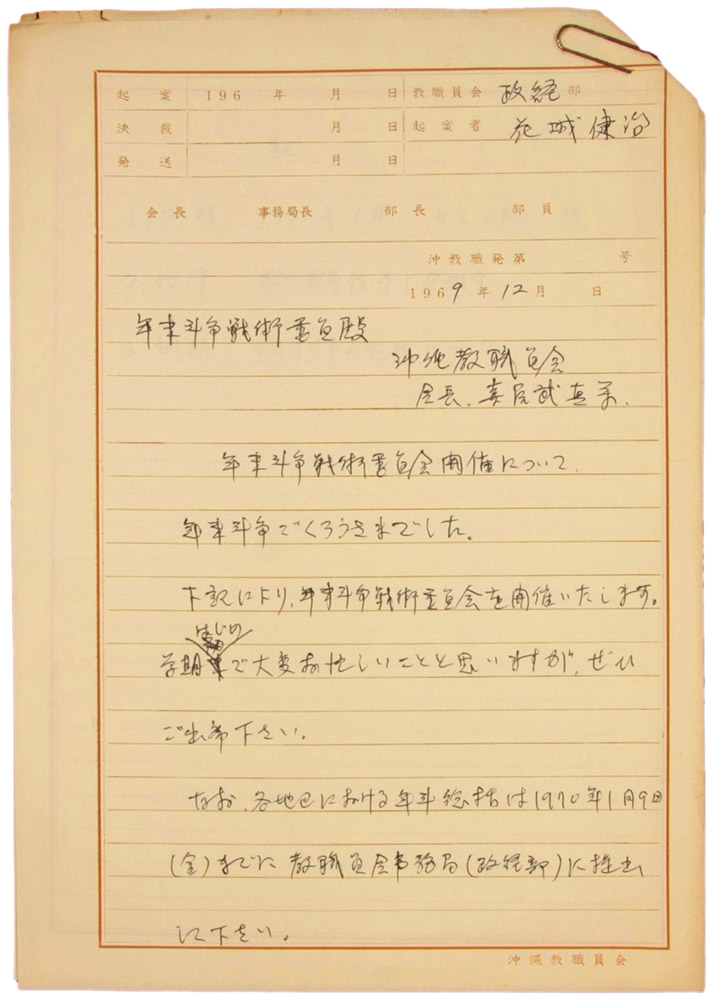 起案 196 年 月 日 教職員会 政経 部
決裁 月 日 起案者 花城健治
発送 月 日
会長 事務局長 部長 部員
沖教職発第 号
1969年12月 日
年末斗争戦術委員殿
沖縄教職員会
会長、喜屋武真栄.
年末斗争戦術委員会開催について.
年末斗争でくろうさまでした。
下記により、年末斗争戦術委員会を開催いたします。
はじめ
学期で大変お忙しいことと思いますが、ぜひ
ご出席下さい。
なお、各地区における年斗総括は1970年1月9日
(金)までに教職員会事務局(政経部)に提出
して下さい。
沖縄教職員会